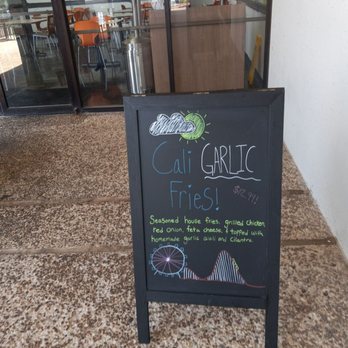 Cali GARLIC
Fries!
$12.99!
Seasoned house fries, grilled chicken
red onion, feta cheese, & topped with
homemade garlic aioli and cilantro.